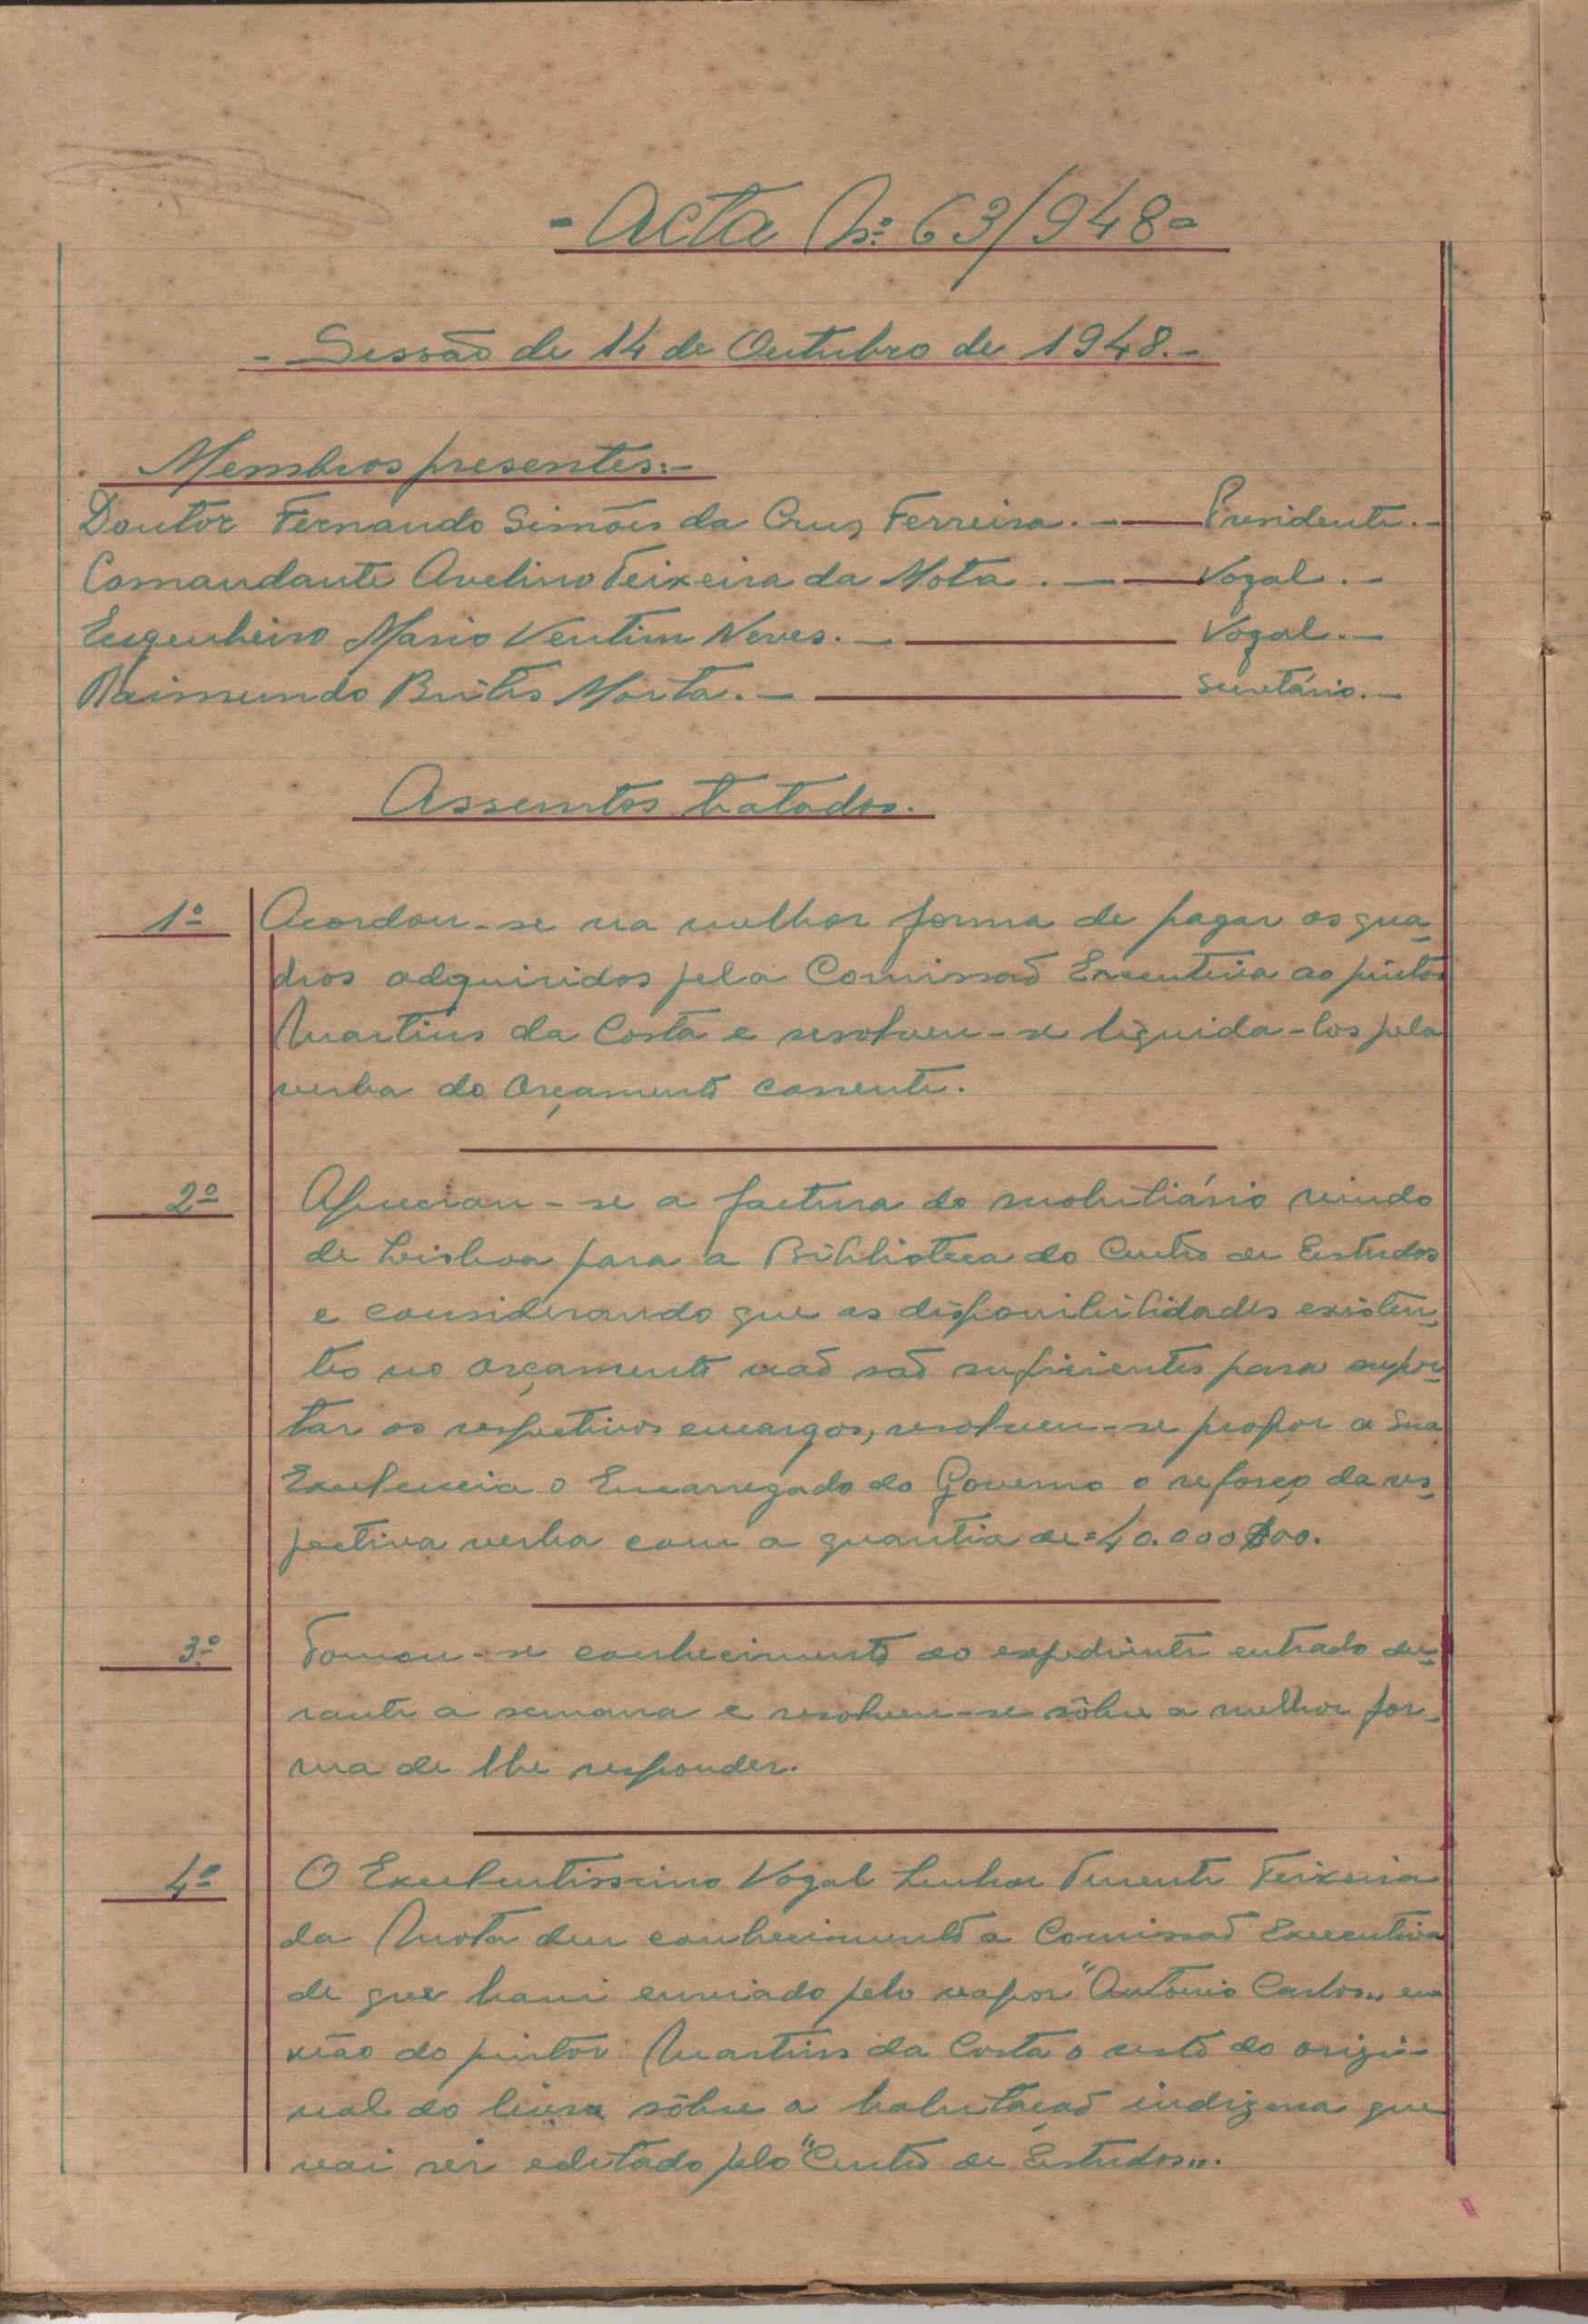 - Acta Nº 63/948 -
- Sessão de 14 de Outubro de 1948.-
Membros presentes:-
Doutor Fernando Simões da Cruz Ferreira.- Presidente.-
Comandante Avelino Teixeira da Mota.- Vogal.-
Engenheiro Mario Ventim Neves.- Vogal.-
Raimundo Brites Moita.- Secretário.-
Assuntos tratados.
1º Acordou-se na melhor forma de pagar os qua-
dros adquiridos pela Comissão Executiva ao pintor
Martins da Costa e resolveu-se liquida-los pela
verba do Orçamento corrente.
2º Apreciou-se a factura do mobiliário vindo
de Lisboa para a Biblioteca do Centro de Estudos
e considerando que as disponibilidades existen-
tes no orçamento não são suficientes para supor-
tar os respectivos encargos, resolveu-se propor a Sua
Excelencia o Encarregado do Governo o reforço da res-
pectiva verba com a quantia de=40.000$00.
3º Tomou-se conhecimento do expediente entrado du-
rante a semana e resolveu-se sôbre a melhor for-
ma de lhe responder.
4º O Excelentissimo Vogal Senhor Tenente Teixeira
da Mota deu conhecimento a Comissão Executiva
de que havi enviado pelo vapor "António Carlos" em
mão do pintor Martins da Costa o resto do origi-
nal do livro sôbre a habitação indigena que
vai ser editado pelo "Centro de Estudos".